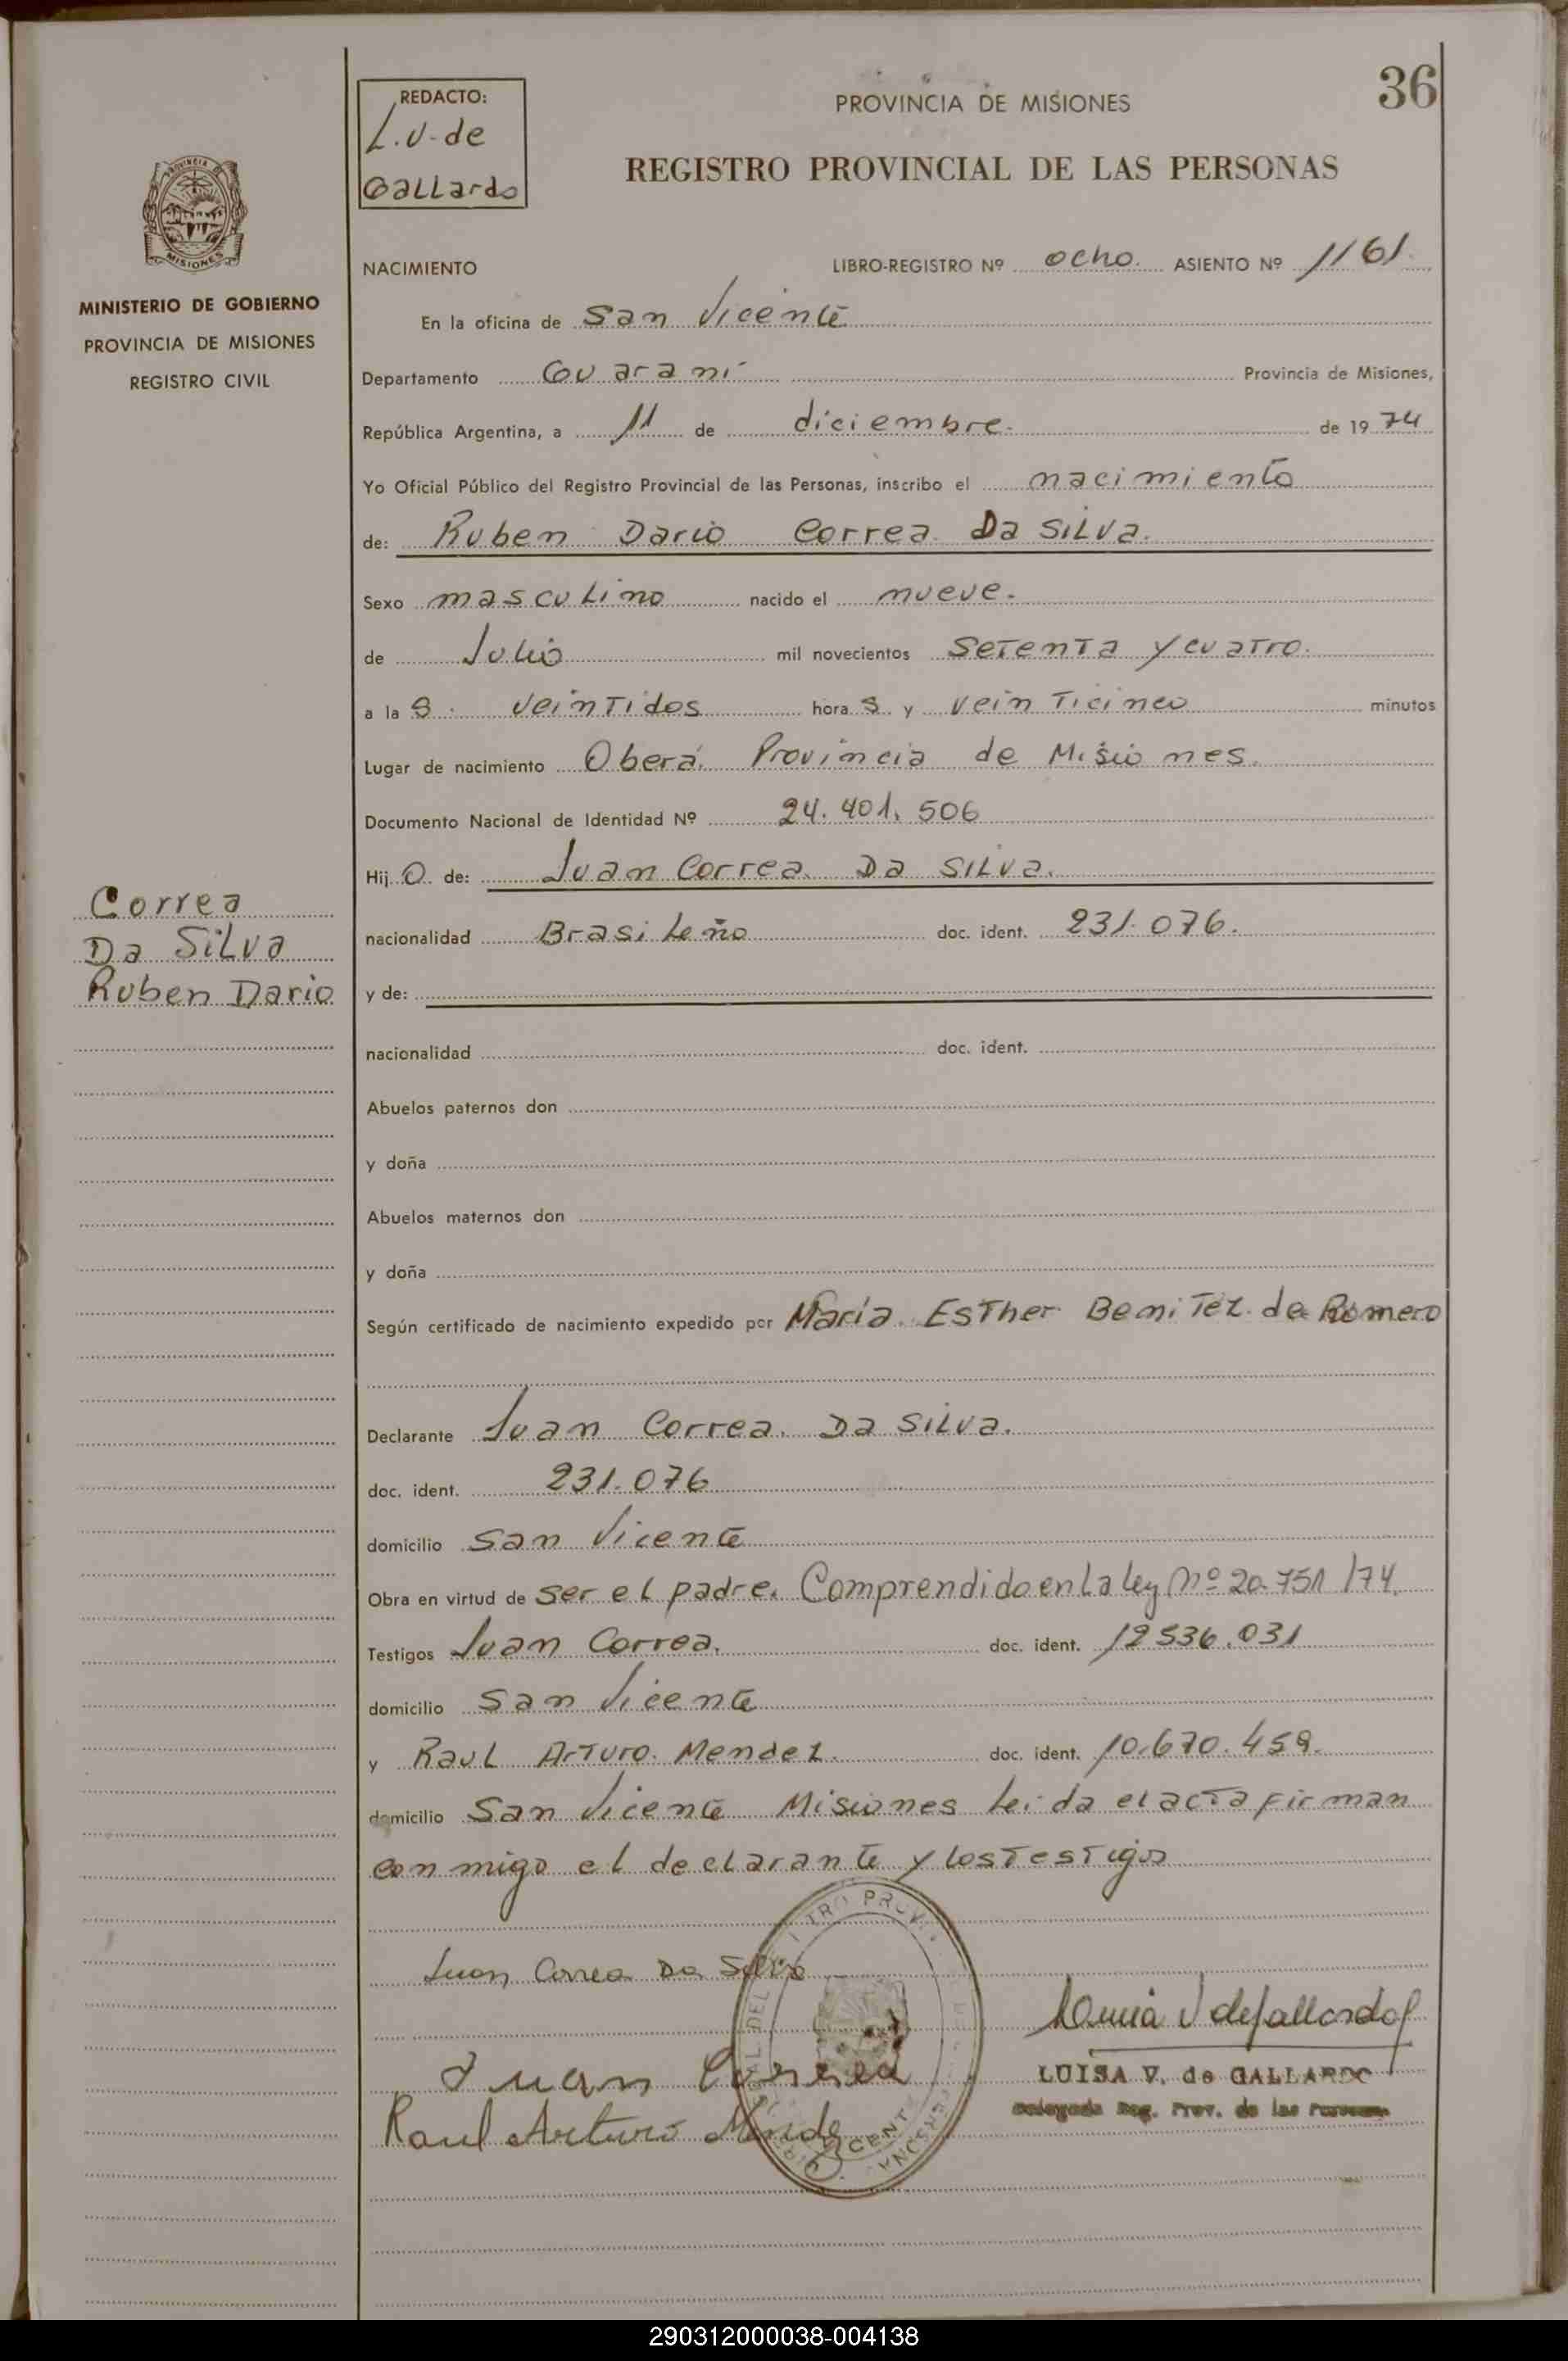 36
REDACTO:
L.V. de
Gallardo
PROVINCIA DE MISIONES
REGISTRO PROVINCIAL DE LAS PERSONAS
PROVINCIA
MISIONES
MINISTERIO DE GOBIERNO
PROVINCIA DE MISIONES
REGISTRO CIVIL
NACIMIENTO LIBRO-REGISTRO Nº ocho. ASIENTO Nº 1161.
En la oficina de San Vicente
Departamento Guaraní Provincia de Misiones,
República Argentina, a 11 de diciembre. de 1974
Yo Oficial Público del Registro Provincial de las Personas, inscribo el nacimiento
de: Ruben Dario Correa Da Silva.
Sexo masculino nacido el nueve.
de Julio mil novecientos setenta y cuatro.
a la s. veintidos hora s y veinticinco minutos
Lugar de nacimiento Oberá. Provincia de Misiones.
Documento Nacional de Identidad Nº 24.401.506
Hijo de: Juan Correa Da Silva.
nacionalidad Brasileño doc. ident. 231.076.
Correa
Da Silva
Ruben Dario
y de:
nacionalidad doc. ident.
Abuelos paternos don
y doña
Abuelos maternos don
y doña
Según certificado de nacimiento expedido por María Esther Benitez de Romero
Declarante Juan Correa Da Silva.
doc. ident. 231.076
domicilio San Vicente
Obra en virtud de ser el padre. Comprendido en la ley Nº 20.751/74.
Testigos Juan Correa. doc. ident. 12536.031
domicilio San Vicente
y Raul Arturo Mendez. doc. ident. 10.670.459.
domicilio San Vicente Misiones leida el acta firman
conmigo el declarante y los testigos
Juan Correa Da Silva
Juan Correa
Raul Arturo Mende
LUISA V. de GALLARDO
Delegada Reg. Prov. de las Personas
290312000038-004138